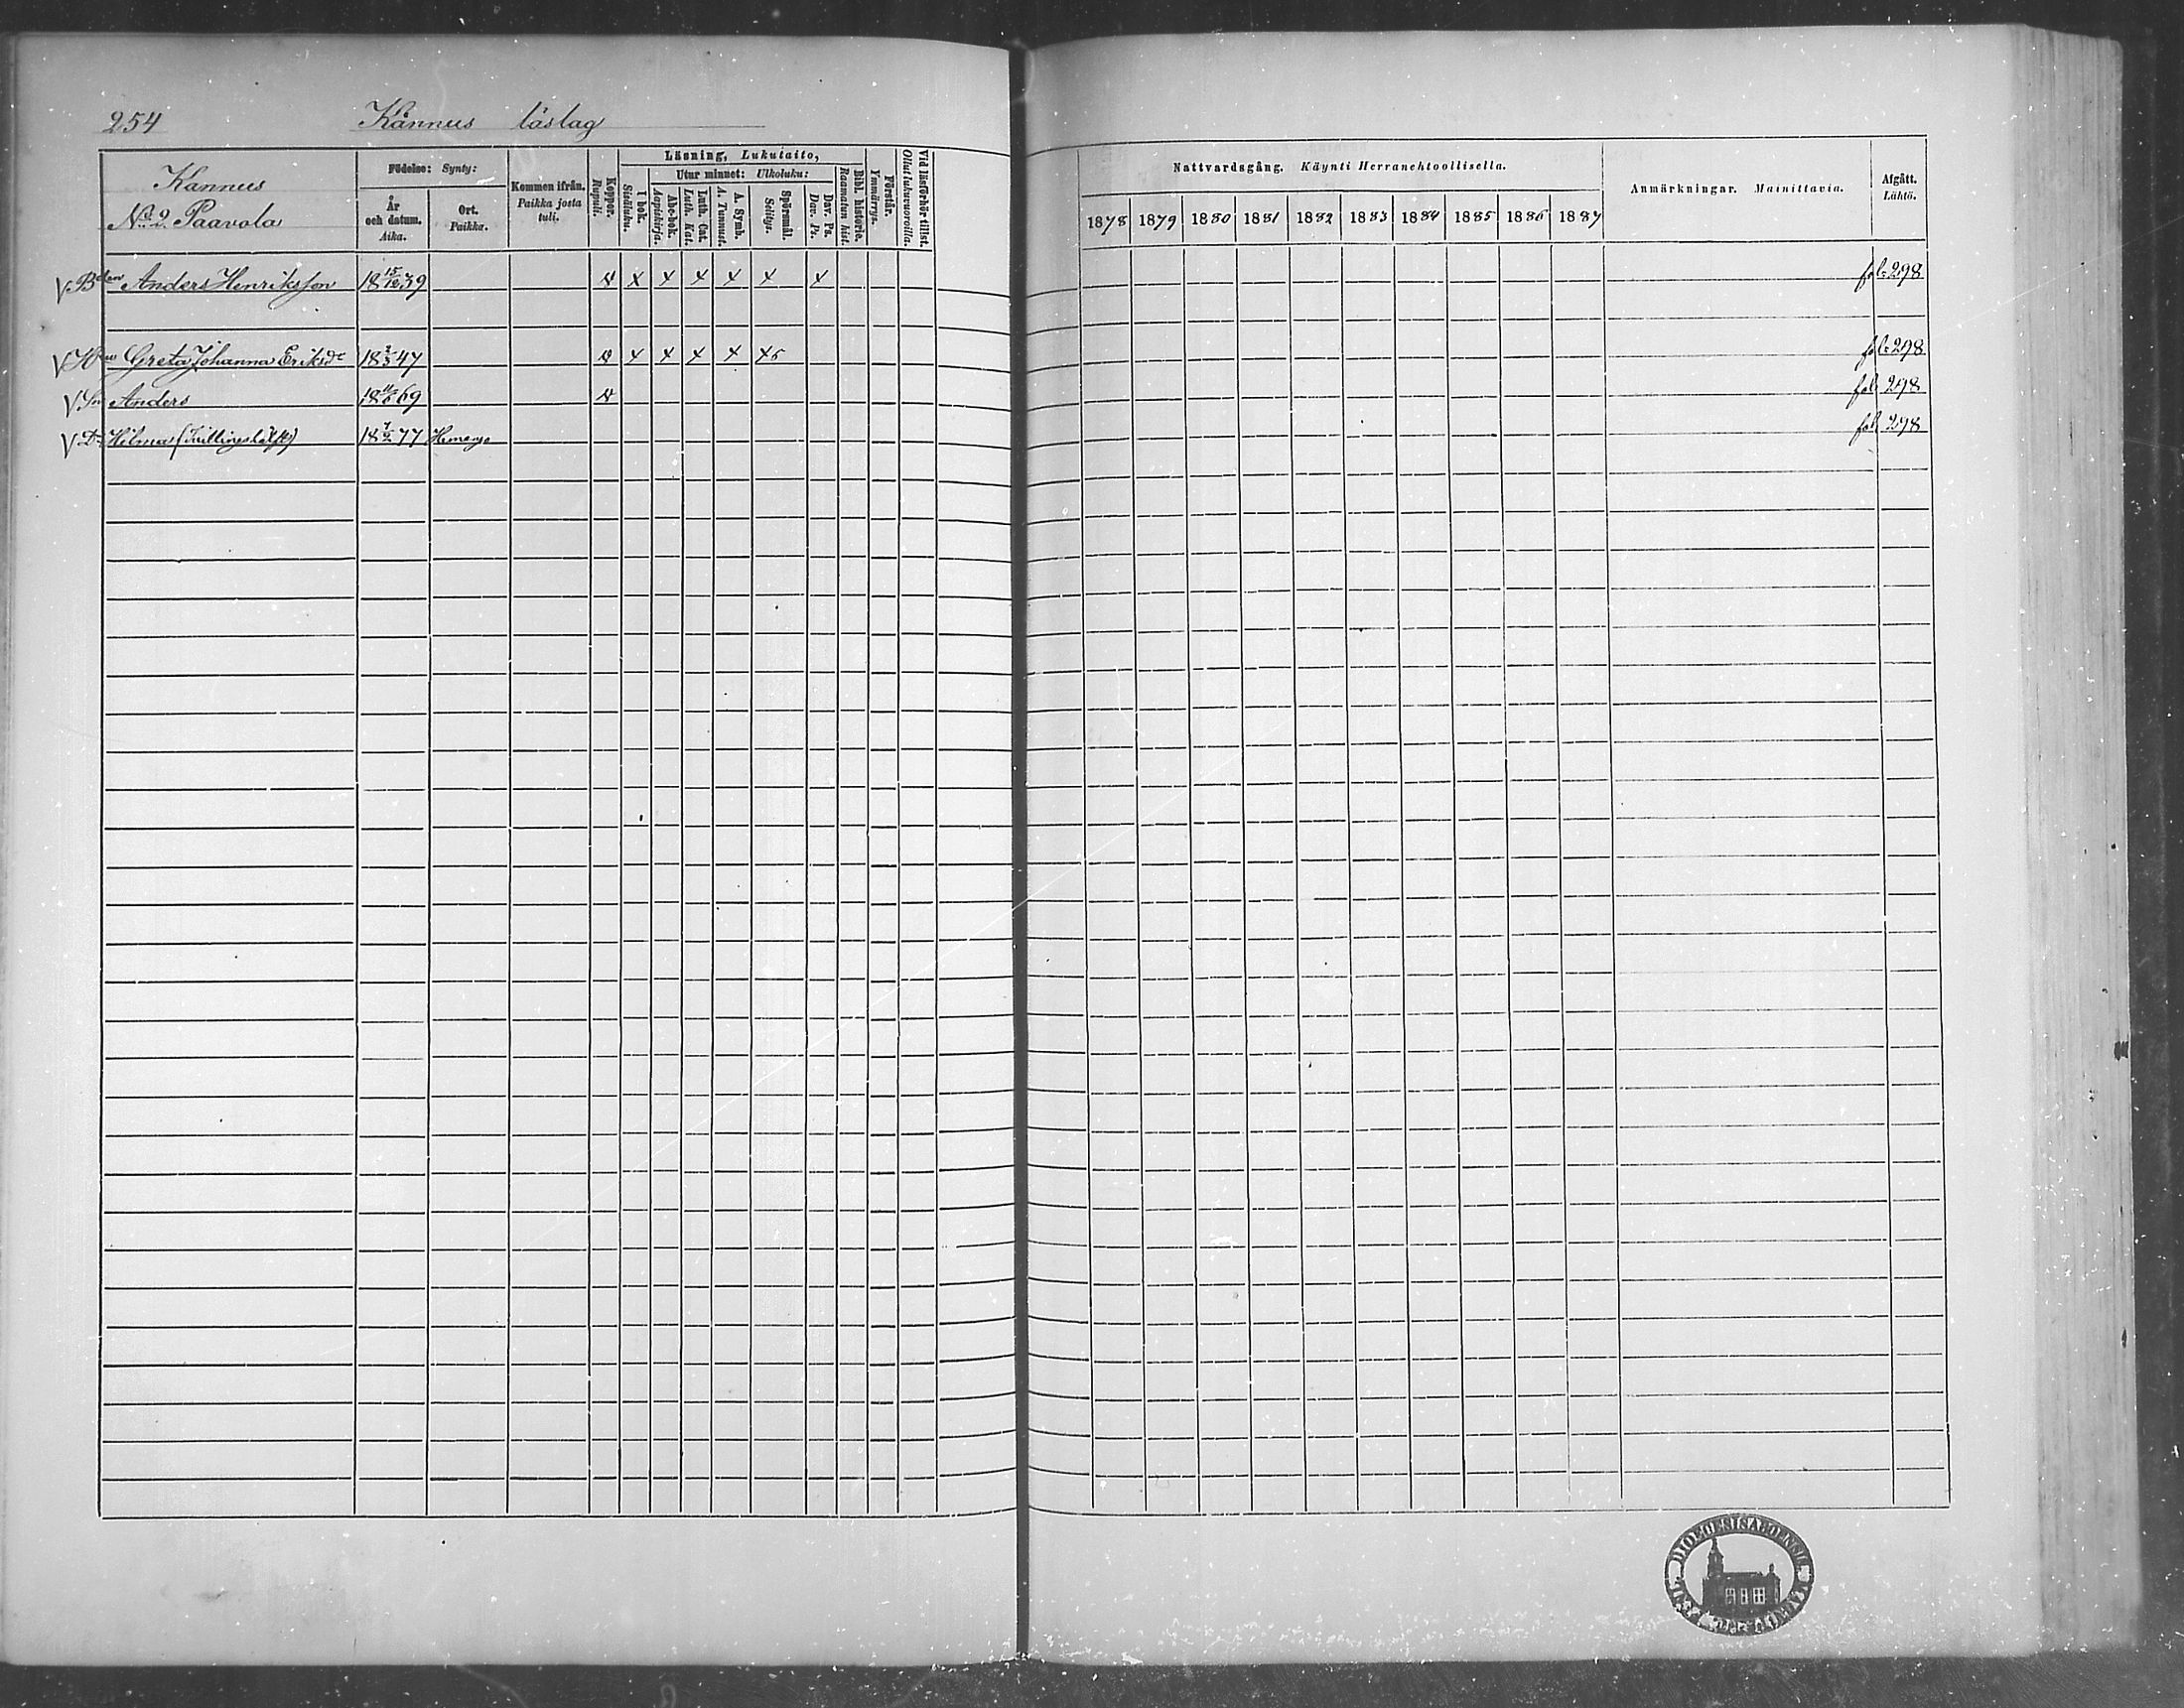 254 Kannus läslag
Kannus
No 2. Paavola
Födelse: Synty:
År och datum. Aika.
Ort. Paikka.
Kommen ifrån. Paikka josta tuli.
Koppor. Rupuli.
Läsning, Lukutaito,
I bok. Sisäluku.
Utur minnet: Ulkoluku:
Abc-bok. Aapiskirja.
Luth. Cat. Luth. Kat.
A. Symb. A. Tunnust.
Spörsmål. Selitys.
Dav. Ps. Dav. Ps.
Bibl. historie. Raamatun hist.
Förstår. Ymmärrys.
Vid läsförhör tillst. Ollut lukuvuoroilla.
Nattvardsgång. Käynti Herranehtoollisella.
1878 1879 1880 1881 1882 1883 1884 1885 1886 1887
Anmärkningar. Mainittavia.
Afgått. Lähtö.
V Bden Anders Henriksson 18 15/12 39 x x x x x x fol. 298
V Hu Greta Johanna Eriksdr 18 47 x x x x x 5 fol. 298
V Sn Anders 18 69 fol. 298
V D. Hilma 18 77 fol. 298